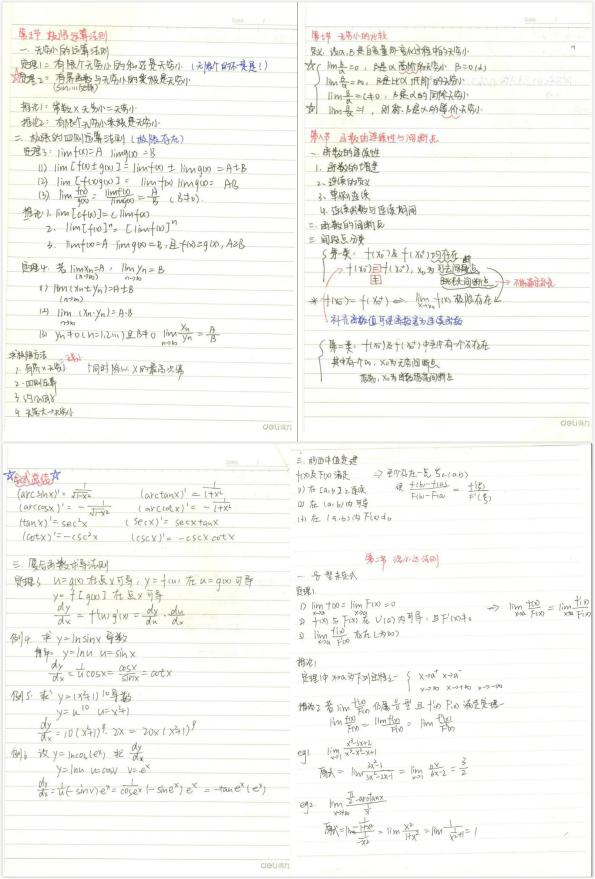 第五节 极限运算法则
一. 无穷小的运算法则
定理1: 有限个无穷小的和还是无穷小 (无限个时不一定是!)
定理2: 有界函数与无穷小的乘积是无穷小
推论1: 常数×无穷小=无穷小
推论2: 有限个无穷小乘积是无穷小
二. 极限的四则运算法则 (极限存在)
定理3: limf(x)=A limg(x)=B
(1) lim[f(x)±g(x)]=limf(x)±limg(x)=A±B
(2) lim[f(x)g(x)]=limf(x)limg(x)=AB
(3) lim f(x)/g(x) = limf(x)/limg(x) = A/B (B≠0)
推论: 1. lim[cf(x)]=c limf(x)
2. lim[f(x)]ⁿ=[limf(x)]ⁿ
3. limf(x)=A limg(x)=B, 且f(x)≥g(x), A≥B
定理4. 若 lim xn=A, lim yn=B
(n→∞) n→∞
(1) lim(xn±yn)=A±B
(n→∞)
(2) lim(xn·yn)=A·B
n→∞
(3) yn≠0(n=1,2…)且B≠0 lim xn/yn = A/B
n→∞
求极限方法
1. 有界×无穷小
同时除以x的最高次幂
2. 四则运算
4. 无穷大→无穷小
第七节 无穷小的比较
定义: 设α,β是自变量同一变化过程中的无穷小
lim β/α=0, β是α高阶的无穷小 β=o(α)
lim β/α=∞, β是比α低阶的无穷小
lim β/α=c≠0, β是α的同阶无穷小
lim β/α=1, 则称β是α的等价无穷小
第八节 函数的连续性与间断点
一. 函数的连续性
1. 函数的增量
2. 连续的定义
3. 单侧连续
4. 连续函数与连续区间
二. 函数的间断点
三. 间断点分类
第一类: f(x₀⁻)及f(x₀⁺)均存在
f(x₀⁻)=f(x₀⁺), x₀为可去间断点
跳跃间断点
* f(x₀⁻)=f(x₀⁺) ⇔ lim f(x)极限存在
x→x₀
补充函数值可使函数变为连续函数
第二类: f(x₀⁻)及f(x₀⁺)中至少有一个不存在
其中有个∞, x₀为无穷间断点
振荡, x₀为函数振荡间断点
deli得力
☆公式总结☆
(arcsinx)'=1/√(1-x²) (arctanx)'=1/(1+x²)
(arccosx)'=-1/√(1-x²) (arccotx)'=-1/(1+x²)
(tanx)'=sec²x (secx)'=secxtanx
(cotx)'=-csc²x (cscx)'=-cscxcotx
三. 复合函数求导法则
定理3 u=g(x)在点x可导, y=f(u)在u=g(x)可导
y=f[g(x)]在点x可导
dy/dx=f'(u)g'(x)=dy/du·du/dx
例4. 求y=lnsinx导数
y=lnu u=sinx
dy/dx=1/u cosx=cosx/sinx=cotx
例5: 求y=(x²+1)¹⁰导数
y=u¹⁰ u=x²+1
dy/dx=10(x²+1)⁹·2x=20x(x²+1)⁹
例6: 设y=lncos(eˣ) 求dy/dx
y=lnu u=cosv v=eˣ
dy/dx=1/u(-sinv)eˣ=1/coseˣ(-sineˣ)eˣ=-taneˣ(eˣ)
deli得力
三. 柯西中值定理
f(x)及F(x)满足 ⇒ 至少存在一点ξ∈(a,b)
(1) 在[a,b]上连续 使 [f(b)-f(a)]/[F(b)-F(a)]=f'(ξ)/F'(ξ)
(2) 在(a,b)内可导
(3) 在(a,b)内F'(x)≠0
第二节 洛必达法则
一. 0/0型未定式
定理1
1) lim f(x)=lim F(x)=0 ⇒ lim f(x)/F(x)=lim f'(x)/F'(x)
2) f(x)与F(x)在U(a)内可导, 且F'(x)≠0
3) lim f'(x)/F'(x) 存在(或为∞)
推论1
定理1中x→a为下列过程之一 { x→a⁺ x→a⁻
x→∞ x→+∞ x→-∞
推论2 若lim f'(x)/F'(x)仍属0/0型 且f'(x) F'(x)满足定理一
lim f(x)/F(x)=lim f'(x)/F'(x)=lim f''(x)/F''(x)
eg1 lim (x³-3x+2)/(x³-x²-x+1)
原式=lim (3x²-3)/(3x²-2x-1)=lim 6x/(6x-2)=3/2
eg2. lim (π/2-arctanx)/(1/x)
x→+∞
原式=lim (-1/(1+x²))/(-1/x²)=lim x²/(1+x²)=lim 1/(1/x²+1)=1